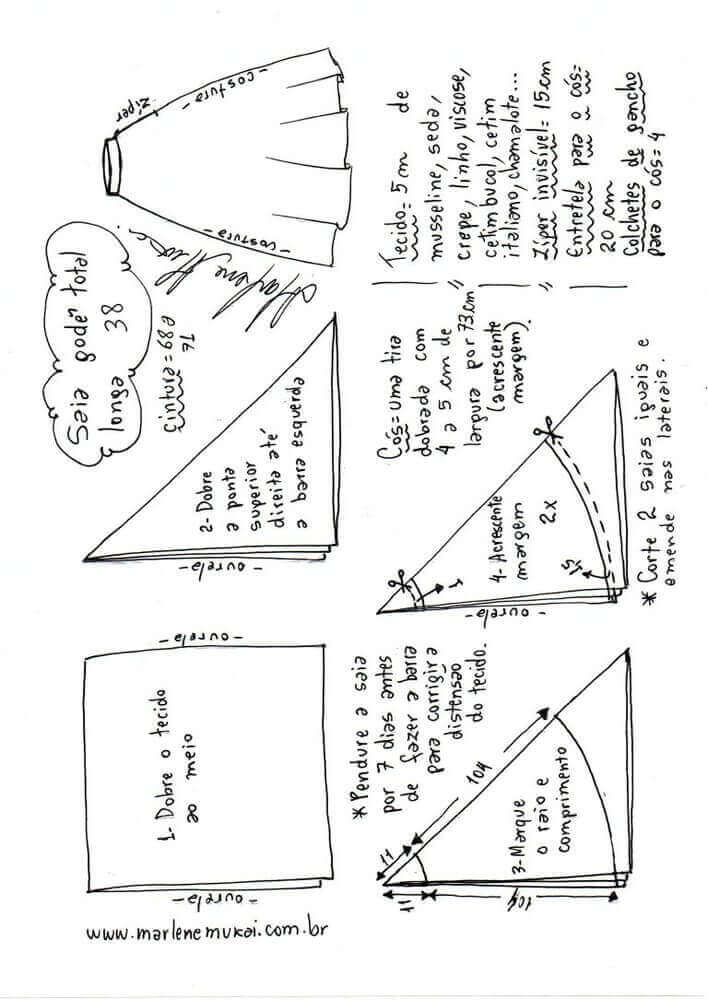 www.marlenemukai.com.br
- ourela -
1- Dobre o tecido
ao meio
- ourela -
- ourela -
2- Dobre
a ponta
superior
direita até
a barra esquerda
Saia godê total
longa 38
cintura = 68 a
71
zíper
- costura -
- costura -
* Pendure a saia
por 7 dias antes
de fazer a barra
para corrigir a
distensão
do tecido.
11
104
11
104
3- Marque
o raio e
comprimento
Cós= uma tira
dobrada com
4 a 5 cm de
largura por 73cm
(acrescente
margem).
- ourela -
4- Acrescente
margem
2x
1
1,5
* Corte 2 saias iguais e
emende nas laterais.
Tecido= 5 m de
musseline, seda,
crepe, linho, viscose,
cetim bucol, cetim
italiano, chamalote...
Zíper invisível= 15cm
Entretela para o cós=
20 cm
Colchetes de gancho
para o cós= 4